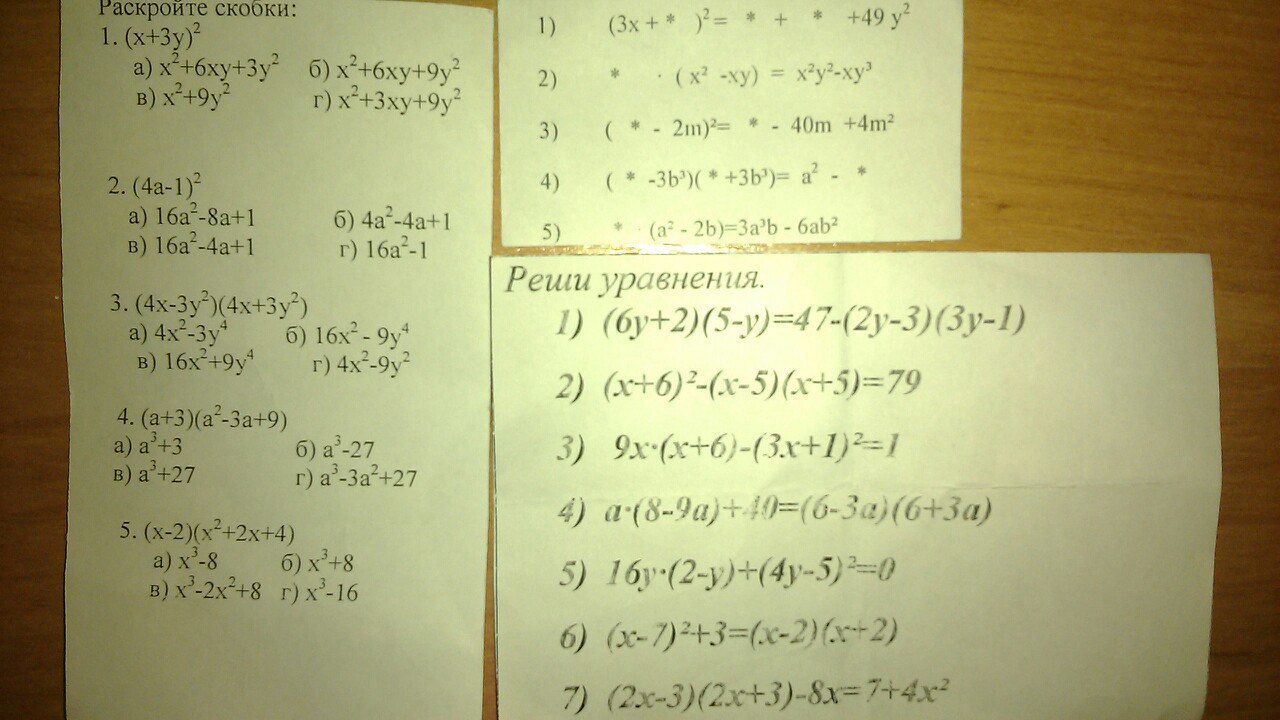 Раскройте скобки:
1. (x+3y)²
а) x²+6xy+3y² б) x²+6xy+9y²
в) x²+9y² г) x²+3xy+9y²
2. (4a-1)²
а) 16a²-8a+1 б) 4a²-4a+1
в) 16a²-4a+1 г) 16a²-1
3. (4x-3y²)(4x+3y²)
а) 4x²-3y⁴ б) 16x² - 9y⁴
в) 16x²+9y⁴ г) 4x²-9y²
4. (a+3)(a²-3a+9)
а) a³+3 б) a³-27
в) a³+27 г) a³-3a²+27
5. (x-2)(x²+2x+4)
а) x³-8 б) x³+8
в) x³-2x²+8 г) x³-16
1) (3x + * )² = * + * +49 y²
2) * · ( x² -xy) = x²y²-xy³
3) ( * - 2m)²= * - 40m +4m²
4) ( * -3b³)( * +3b³)= a² - *
5) * · (a² - 2b)=3a³b - 6ab²
Реши уравнения.
1) (6y+2)(5-y)=47-(2y-3)(3y-1)
2) (x+6)²-(x-5)(x+5)=79
3) 9x·(x+6)-(3x+1)²=1
4) a·(8-9a)+40=(6-3a)(6+3a)
5) 16y·(2-y)+(4y-5)²=0
6) (x-7)²+3=(x-2)(x+2)
7) (2x-3)(2x+3)-8x=7+4x²